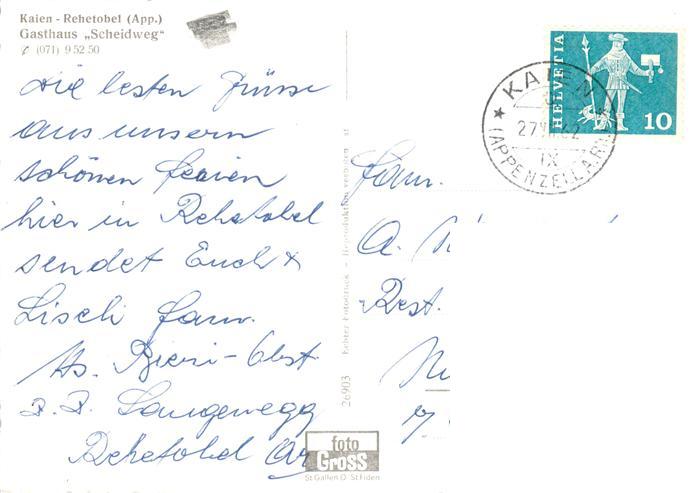 Kaien - Rehetobel (App.)
Gasthaus „Scheidweg"
✆ (071) 9 52 50
Die besten Grüsse
aus unsern
schönen Ferien
hier in Rehetobel
sendet Euch +
Liseli Fam.
Hs. Bieri - Obst
z. Z. Langenegg
Rehetobel AR
26903 Echter Fotodruck - Reproduktion verboten
foto
Gross
St Gallen O-St Fiden
HELVETIA
10
KAIEN
27
62
IX
(APPENZELL A.RH.)
Fam.
A.
Rest.